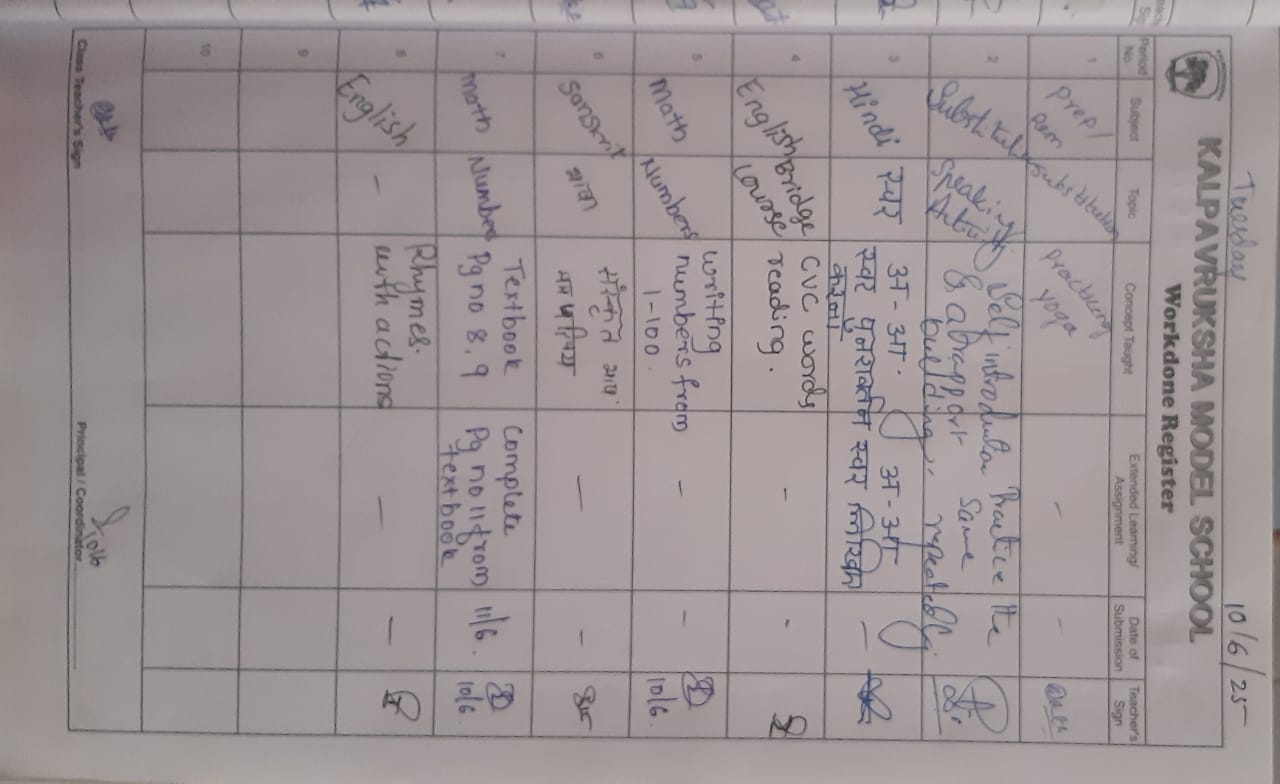 Tuesday
10/6/25
KALPAVRUKSHA MODEL SCHOOL
Workdone Register
Period No.
Subject
Topic
Concept Taught
Extended Learning/ Assignment
Date of Submission
Teacher's Sign
1
Substitution
yoga
-
-
2
Substitution
Speaking
Self introduction
& a rapport
building
Practice the
same
repeatedly.
3
Hindi
स्वर
अ-अः
स्वर
करना
अ-अः
स्वर
-
4
English
Bridge
Course
CVC words
reading.
-
-
5
Math
Numbers
writing
numbers from
1-100.
-
-
10/6.
6
Sanskrit
-
-
7
Math
Numbers
Textbook
Pg no 8, 9
Complete
Pg no 11 from
textbook
11/6.
10/6.
8
English
-
Rhymes.
with actions
-
-
9
10
Class Teacher's Sign
Principal / Coordinator
10/6